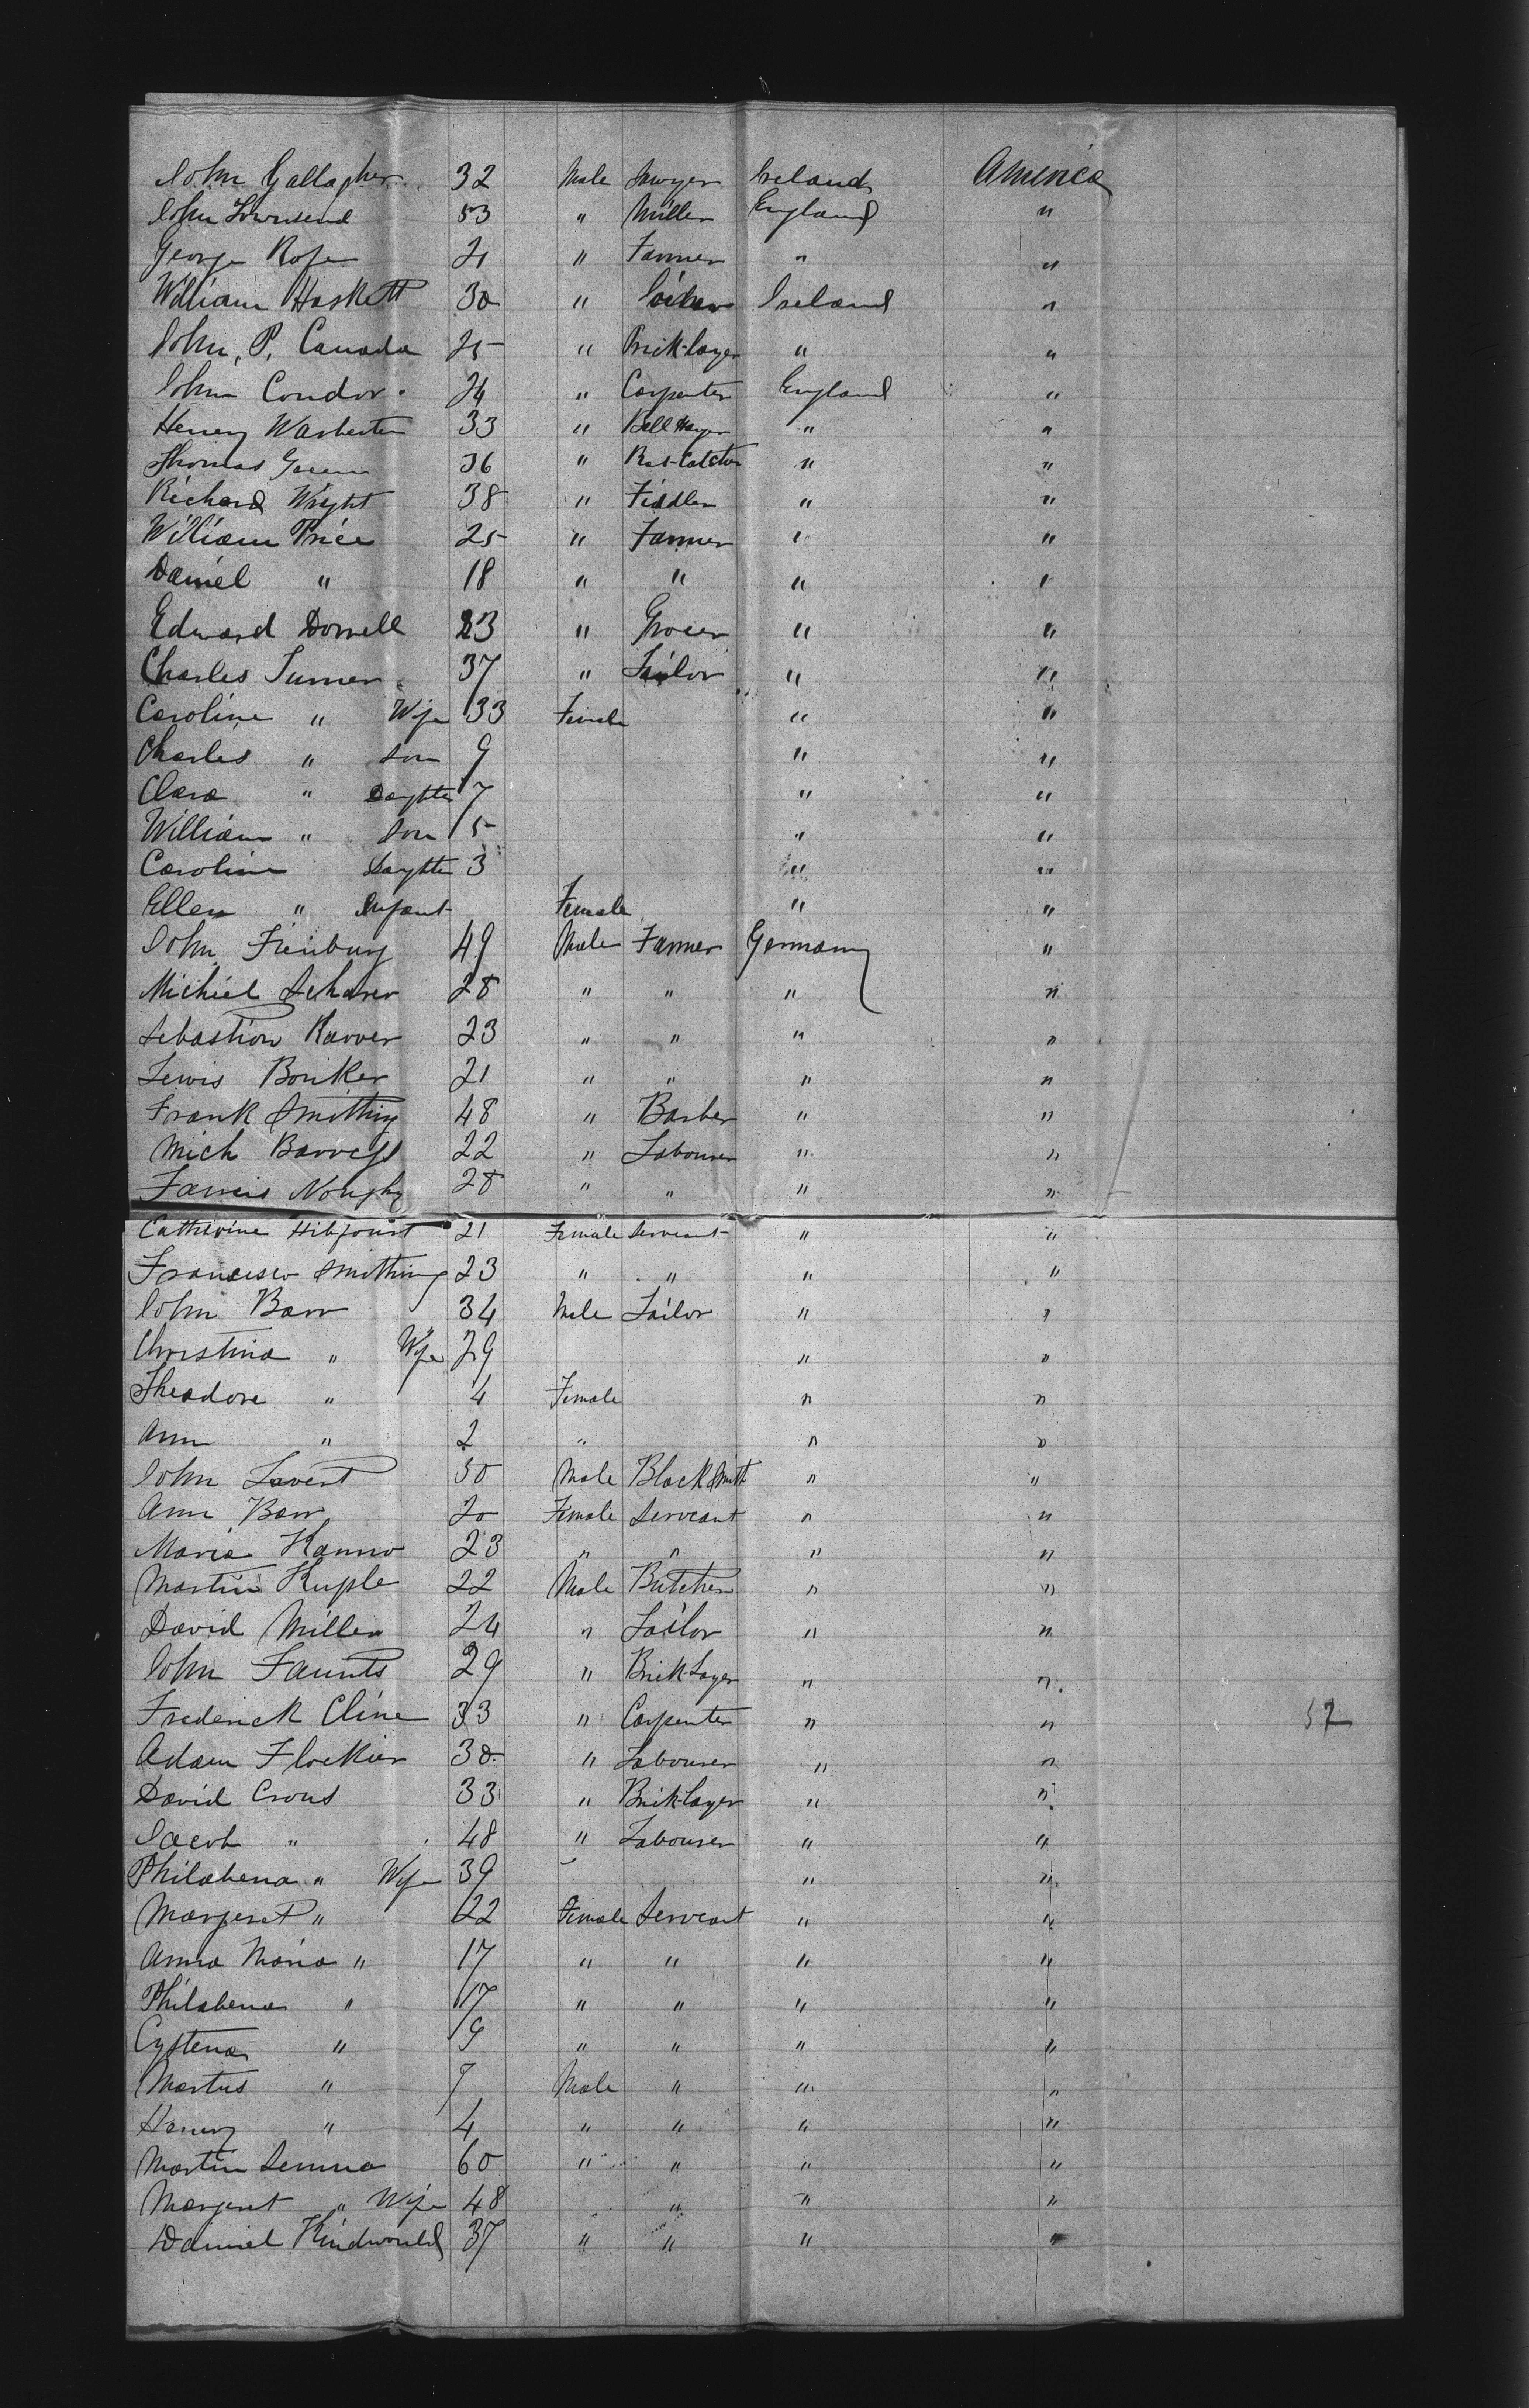 John Gallagher 32 Male Sawyer Ireland America
John Townsend 53 " Miller England "
George Rose 21 " Farmer " "
William Haskett 30 " Ireland "
John, P. Canada 25 " Brick-layer " "
John Condor 24 " Carpenter England "
Henry Warberton 33 " Bell Hanger " "
Thomas Green 36 " Rat-Catcher " "
Richard Wright 38 " Fiddler " "
William Price 25 " Farmer " "
Daniel " 18 " " " "
Edward Dorrell 23 " Grocer " "
Charles Turner 37 " Tailor " "
Caroline " Wife 33 Female " "
Charles " Son 9 " "
Clara " Daughter 7 " "
William " Son 5 " "
Caroline Daughter 3 " "
Ellen " Infant Female " "
John Freiburg 49 Male Farmer Germany "
Michiel Scharer 28 " " " "
Sebastion Karver 23 " " " "
Lewis Bonker 21 " " " "
Frank Smithing 48 " Barber " "
Mich Barress 22 " Labourer " "
Noughy 28 " " " "
Catherine 21 Female Servant " "
Francisco Smithing 23 " " " "
John Barr 34 Male Tailor " "
Christina " Wife 29 " "
Theadore " 4 Female " "
Ann " 2 " " "
John Lavest 30 Male Black Smith " "
Ann Barr 20 Female Servant " "
Maria Kanno 23 " " " "
Martin Kuple 22 Male Butcher " "
David Miller 24 " Tailor " "
John Faunts 29 " Brick-Layer " "
Frederick Cline 33 " Carpenter " " 52
Adam Flockier 30 " Labourer " "
David Crous 33 " Brick-Layer " "
Jacob " 48 " Labourer " "
Philabena " Wife 39 " "
Margeret " 22 Female Servant " "
Anna Maria " 17 " " " "
Philabena " 17 " " " "
Cystena " 9 " " " "
Martus " 7 Male " " "
Henry " 4 " " " "
Martin Semma 60 " " " "
Margeret " Wife 48 " " "
Daniel Kindwould 37 " " " "